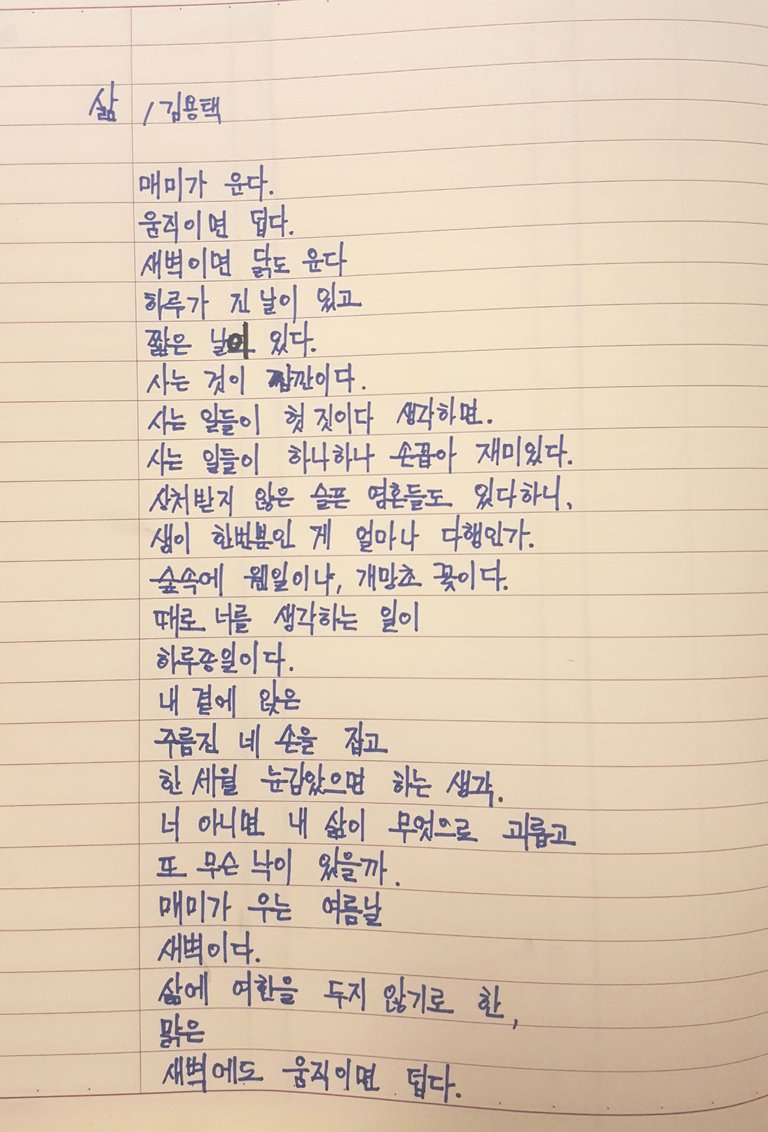 삶 / 김용택
매미가 운다.
움직이면 덥다.
새벽이면 닭도 운다
하루가 긴 날이 있고
짧은 날이 있다.
사는 것이 잠깐이다.
사는 일들이 헛짓이다 생각하면.
사는 일들이 하나하나 손꼽아 재미있다.
상처받지 않은 슬픈 영혼들도 있다하니,
생이 한번뿐인 게 얼마나 다행인가.
숲속에 웬일이냐, 개망초 꽃이다.
때로 너를 생각하는 일이
하루종일이다.
내 곁에 앉은
주름진 네 손을 잡고
한 세월 눈감았으면 하는 생각.
너 아니면 내 삶이 무엇으로 괴롭고
또 무슨 낙이 있을까.
매미가 우는 여름날
새벽이다.
삶에 여한을 두지 않기로 한,
맑은
새벽에도 움직이면 덥다.